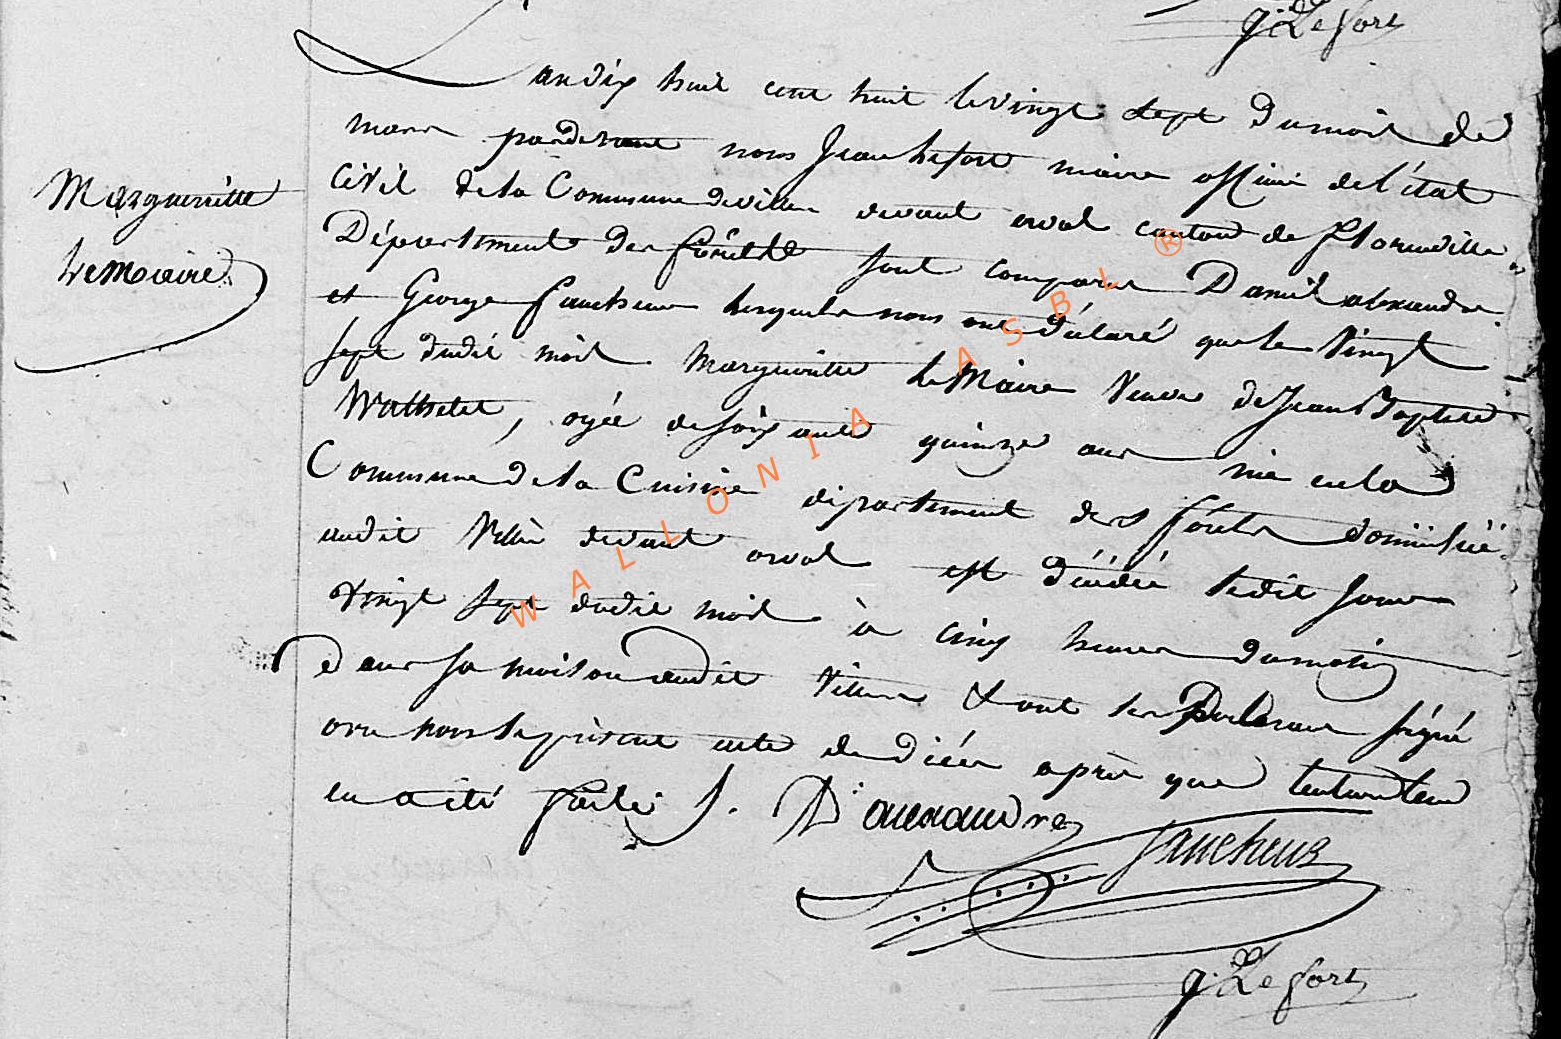 J: Lefort
L'an dix huit cent huit le vingt sept du mois de
mars pardevant nous Jean Lefort maire officier de l'état
Civil de la Commune de villers devant orval canton de florenville
Marguerritte
Département des forêts sont comparus Daniel alexandre
Le Maire
et George faucheux lesquels nous ont déclaré que le Vingt
sept dudit mois Margueritte le Maire Veuve de Jean Baptiste
Wathelet, agée de soixante quinze ans née en la
Commune de la Cuisine département des forêts domiciliée
audit Villers devant orval est décédée ledit jour
Vingt sept dudit mois à cinq heures du matin
dans sa maison audit Villers & ont les déclarans signé
avec nous le présent acte de décès après que lecture leur
en a été faite /.
D: alexandre
faucheux
J: Lefort
WALLONIA ASBL ®